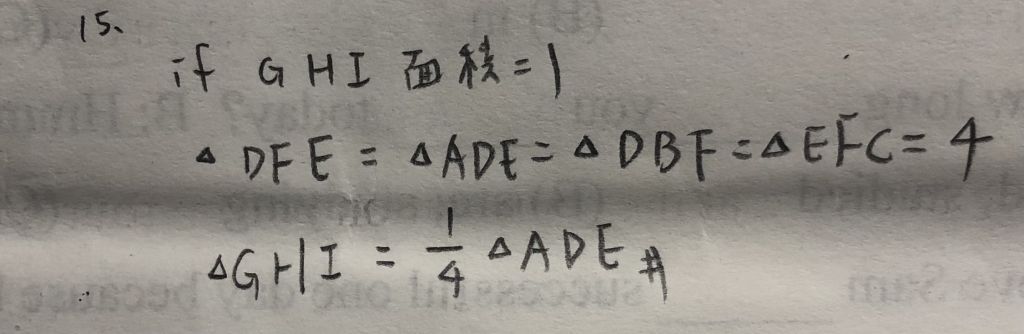 15.
if GHI 面積=1
△DFE = △ADE = △DBF = △EFC = 4
△GHI = 1/4 △ADE #